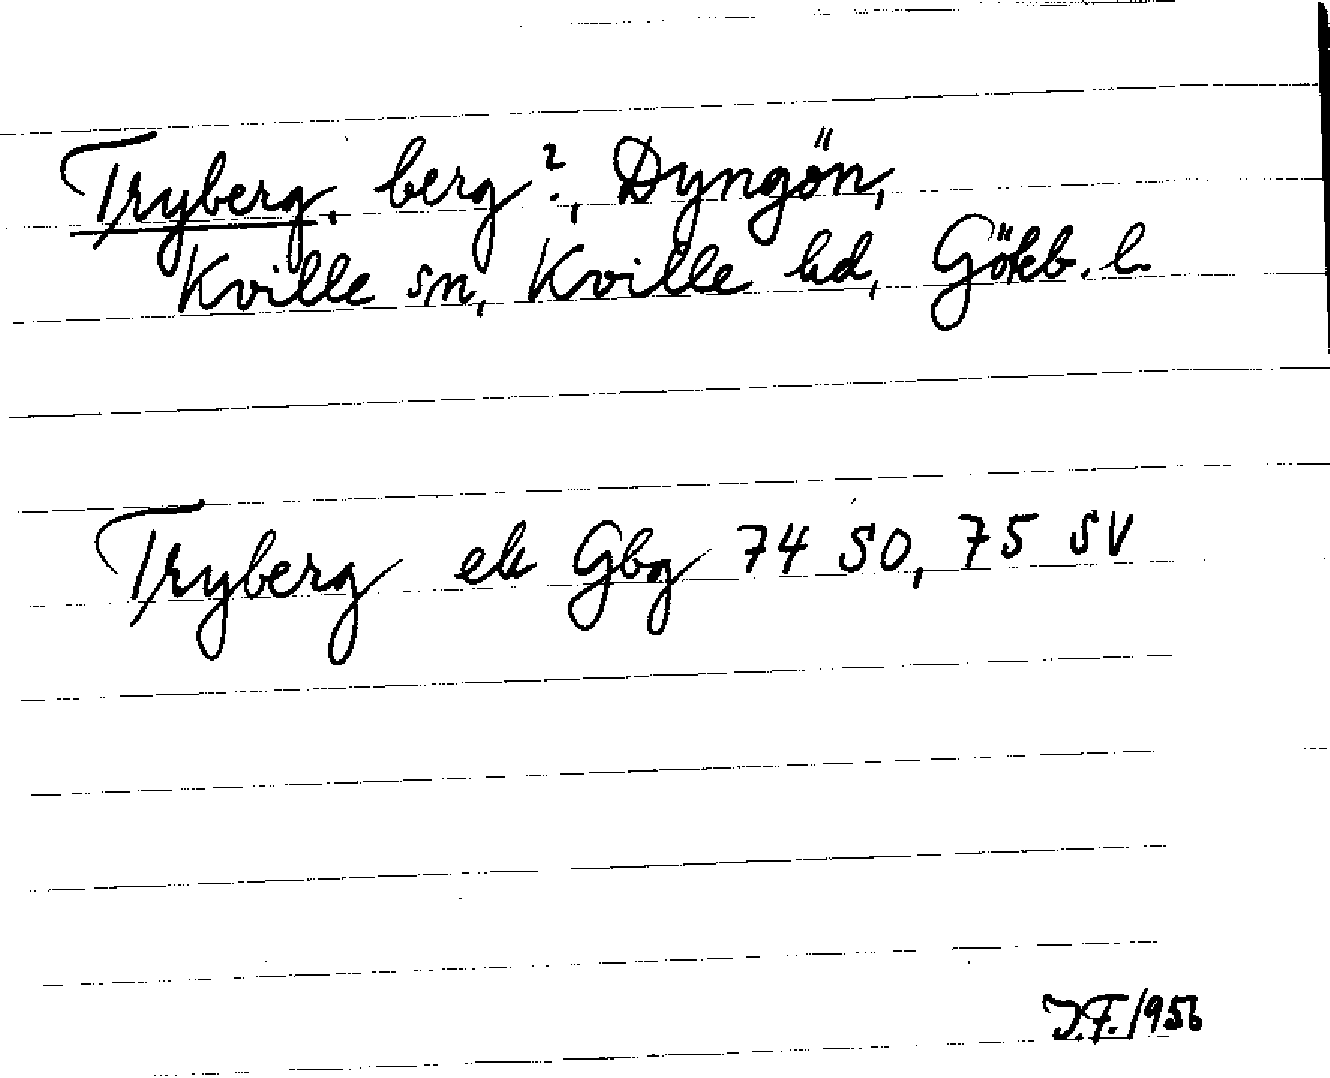 Tryberg, berg?, Dyngön,
Kville sn, Kville hd, Göteb. l.
Tryberg ek Gbg 74 SO, 75 SV
J.F. 1956